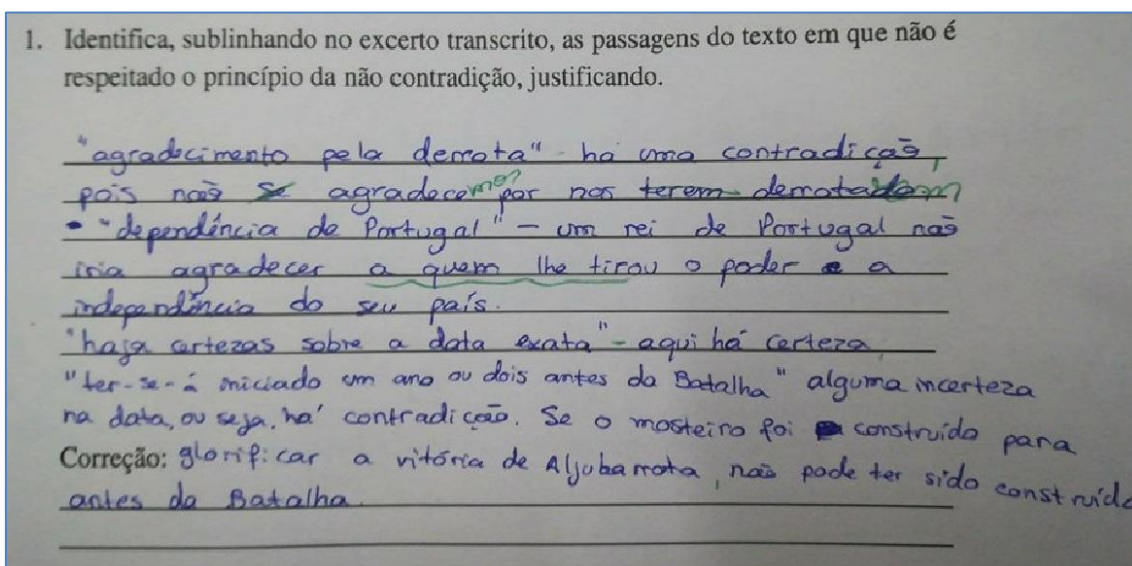 1. Identifica, sublinhando no excerto transcrito, as passagens do texto em que não é
respeitado o princípio da não contradição, justificando.
"agradecimento pela derrota" há uma contradição,
pois não se agradecemos? por nos terem derrotado
• "dependência de Portugal" – um rei de Portugal não
iria agradecer a quem lhe tirou o poder e a
independência do seu país.
"haja certezas sobre a data exata" – aqui há certeza
"ter-se-á iniciado um ano ou dois antes da Batalha" alguma incerteza
na data, ou seja, há contradição. Se o mosteiro foi construído para
Correção: glorificar a vitória de Aljubarrota, não pode ter sido construído
antes da Batalha.